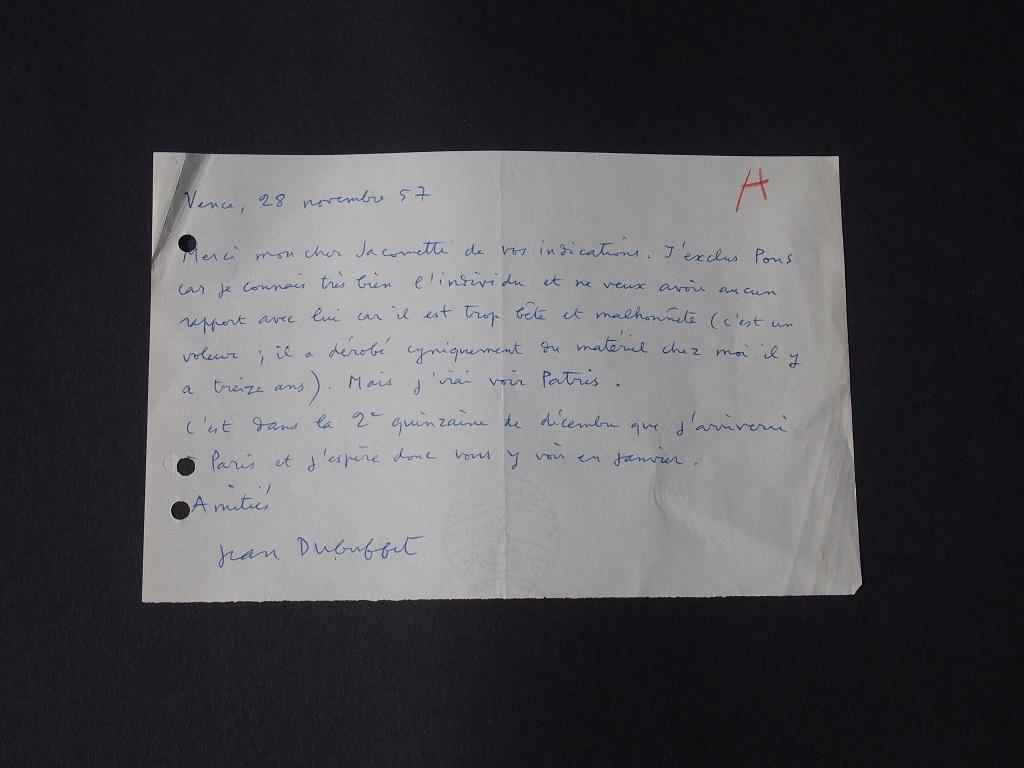 Vence, 28 novembre 57
A
Merci mon cher Jacometti de vos indications. J'exclus Pons
car je connais très bien l'individu et ne veux avoir aucun
rapport avec lui car il est trop bête et malhonnête (c'est un
voleur ; il a dérobé cyniquement du matériel chez moi il y
a treize ans). Mais j'irai voir Patris.
C'est dans la 2e quinzaine de décembre que j'arriverai
Paris et j'espère donc vous y voir en janvier.
Amitiés
Jean Dubuffet